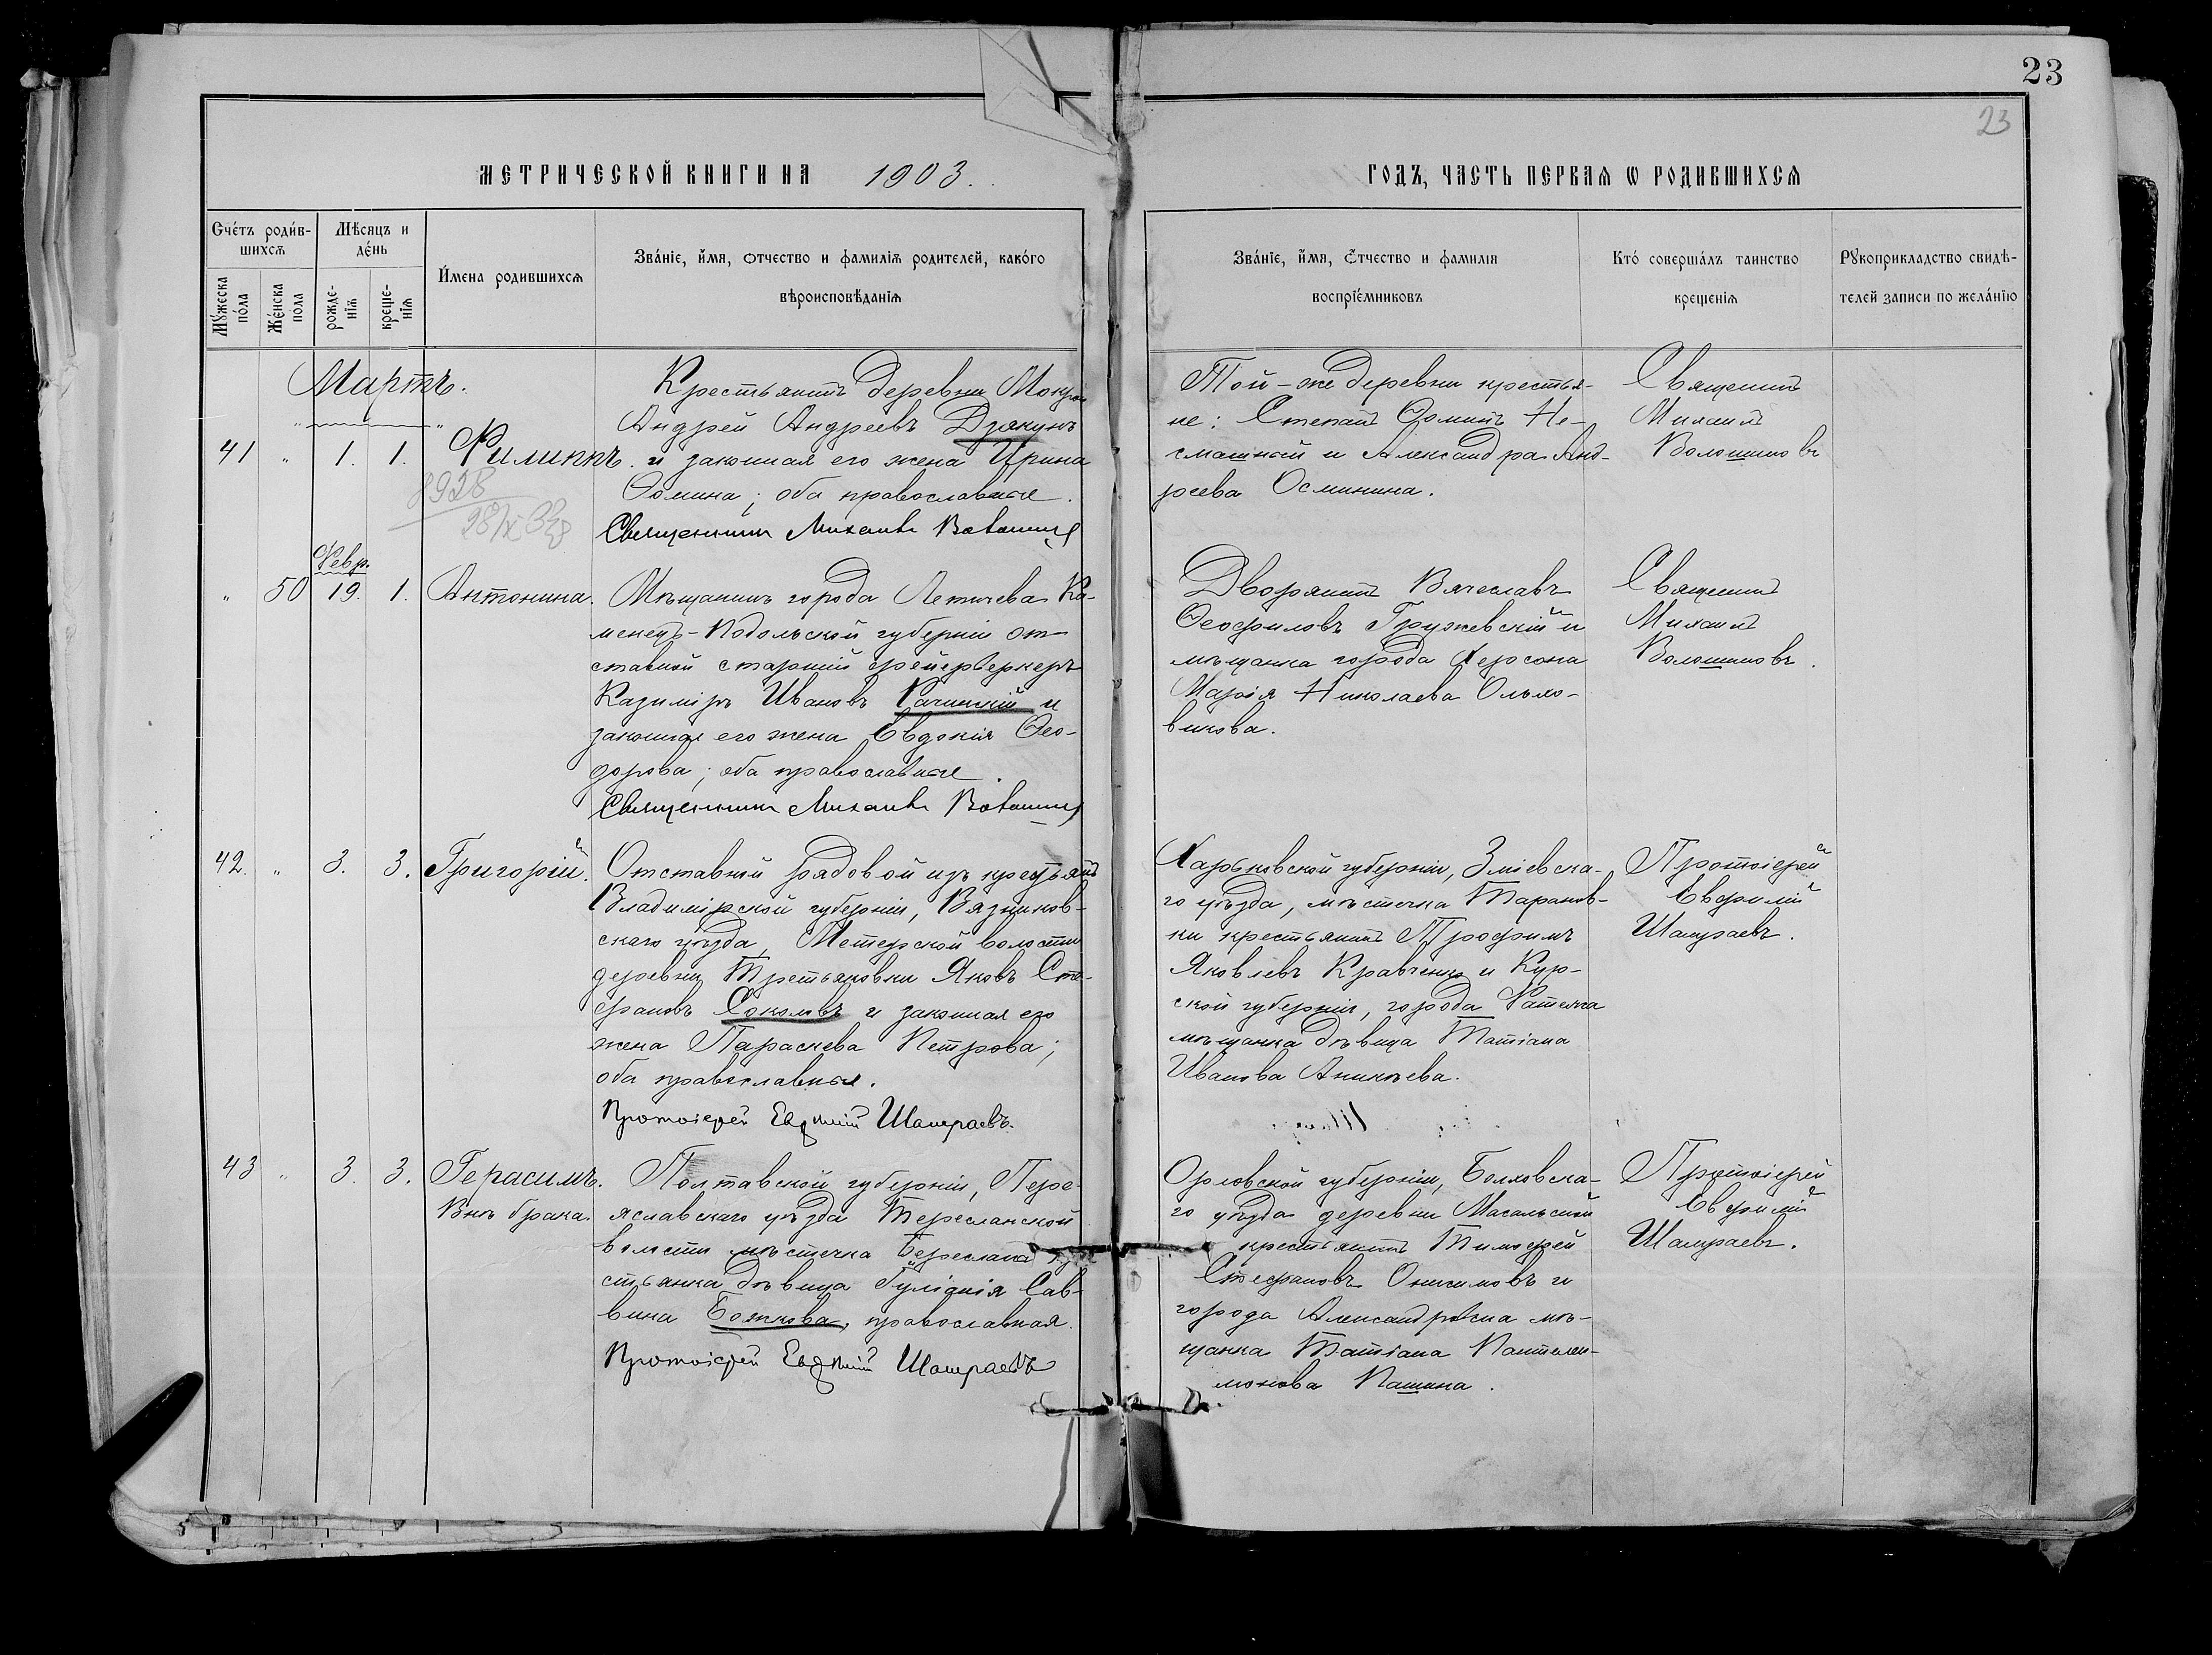 23
23
МЕТРИЧЕСКОЙ КНИГИ НА 1903.
ГОДЪ, ЧАСТЬ ПЕРВАѦ Ѡ РОДИВШИХСѦ
Счéтъ роди́в-
шихсѧ
Мѣсяцъ и
дéнь
Мꙋ́жеска
по́ла
Же́нска
пола
рожде-
нїѧ
креще-
нїѧ
И́мена родившихсѧ
Зва́нїе, и́мя, отчество и фамилїѧ родителей, како́го
вѣроисповѣ́данїѧ
Зва́нїе, и́мя, ѻ́тчество и фамилїя
воспрїе́мниковъ
Кто́ соверша́лъ таинство
крещенїѧ
Рꙋкоприкладство свидѣ-
телей записи по жела́нїю
Мартъ.
41 " 1. 1. Филиппъ.
8928
Крестьянинъ деревни Мокрой
Андрей Андреевъ Дзякунъ
и законная его жена Ирина
Ѳомина; оба православные.
Священникъ Михаилъ Волошинов
Той-же деревни крестья-
не: Степанъ Ѳоминъ Не-
смашный и Александра Анд-
реева Осминина.
Священникъ
Михаилъ
Волошиновъ
Февр.
" 50 19. 1. Антонина.
Мѣщанинъ города Летичева Ка-
менецъ-Подольской губерніи от-
ставной старшій фейерверкеръ
Казиміръ Ивановъ Рачинскій и
законная его жена Евдокія Ѳео-
дорова; оба православные.
Священникъ Михаилъ Волошинов
Дворянинъ Вячеславъ
Ѳеофиловъ Гружевскій и
мѣщанка города Херсона
Марія Николаева Ольхо-
викова.
Священникъ
Михаилъ
Волошиновъ.
42. " 3. 3. Григорій.
Отставной рядовой изъ крестьянъ
Владимірской губерніи, Вязников-
скаго уѣзда, Метерской волости
деревни Третьяковки Яковъ Сте-
фановъ Соколовъ и законная его
жена Параскева Петрова;
оба православные.
Протоіерей Евфимій Шамраевъ.
Харьковской губерніи, Зміевска-
го уѣзда, мѣстечка Таранов-
ки крестьянинъ Трофимъ
Яковлевъ Кравченко и Кур-
ской губерніи, города
мѣщанка дѣвица Татіана
Иванова Аникѣева.
Протоіерей
Евфимій
Шамраевъ.
43 " 3. 3. Герасимъ.
Внѣ брака.
Полтавской губерніи, Пере-
яславскаго уѣзда
волости мѣстечка кре-
стьянка дѣвица Іуліанія Сав-
вина Божкова, православная.
Протоіерей Евфимій Шамраевъ
Орловской губерніи, Болховска-
го уѣзда деревни Масальской
крестьянинъ Тимофей
Стефановъ Онисимовъ и
города Александровска мѣ-
щанка Татіана Пантелеи-
монова Пашина.
Протоіерей
Евфимій
Шамраевъ.